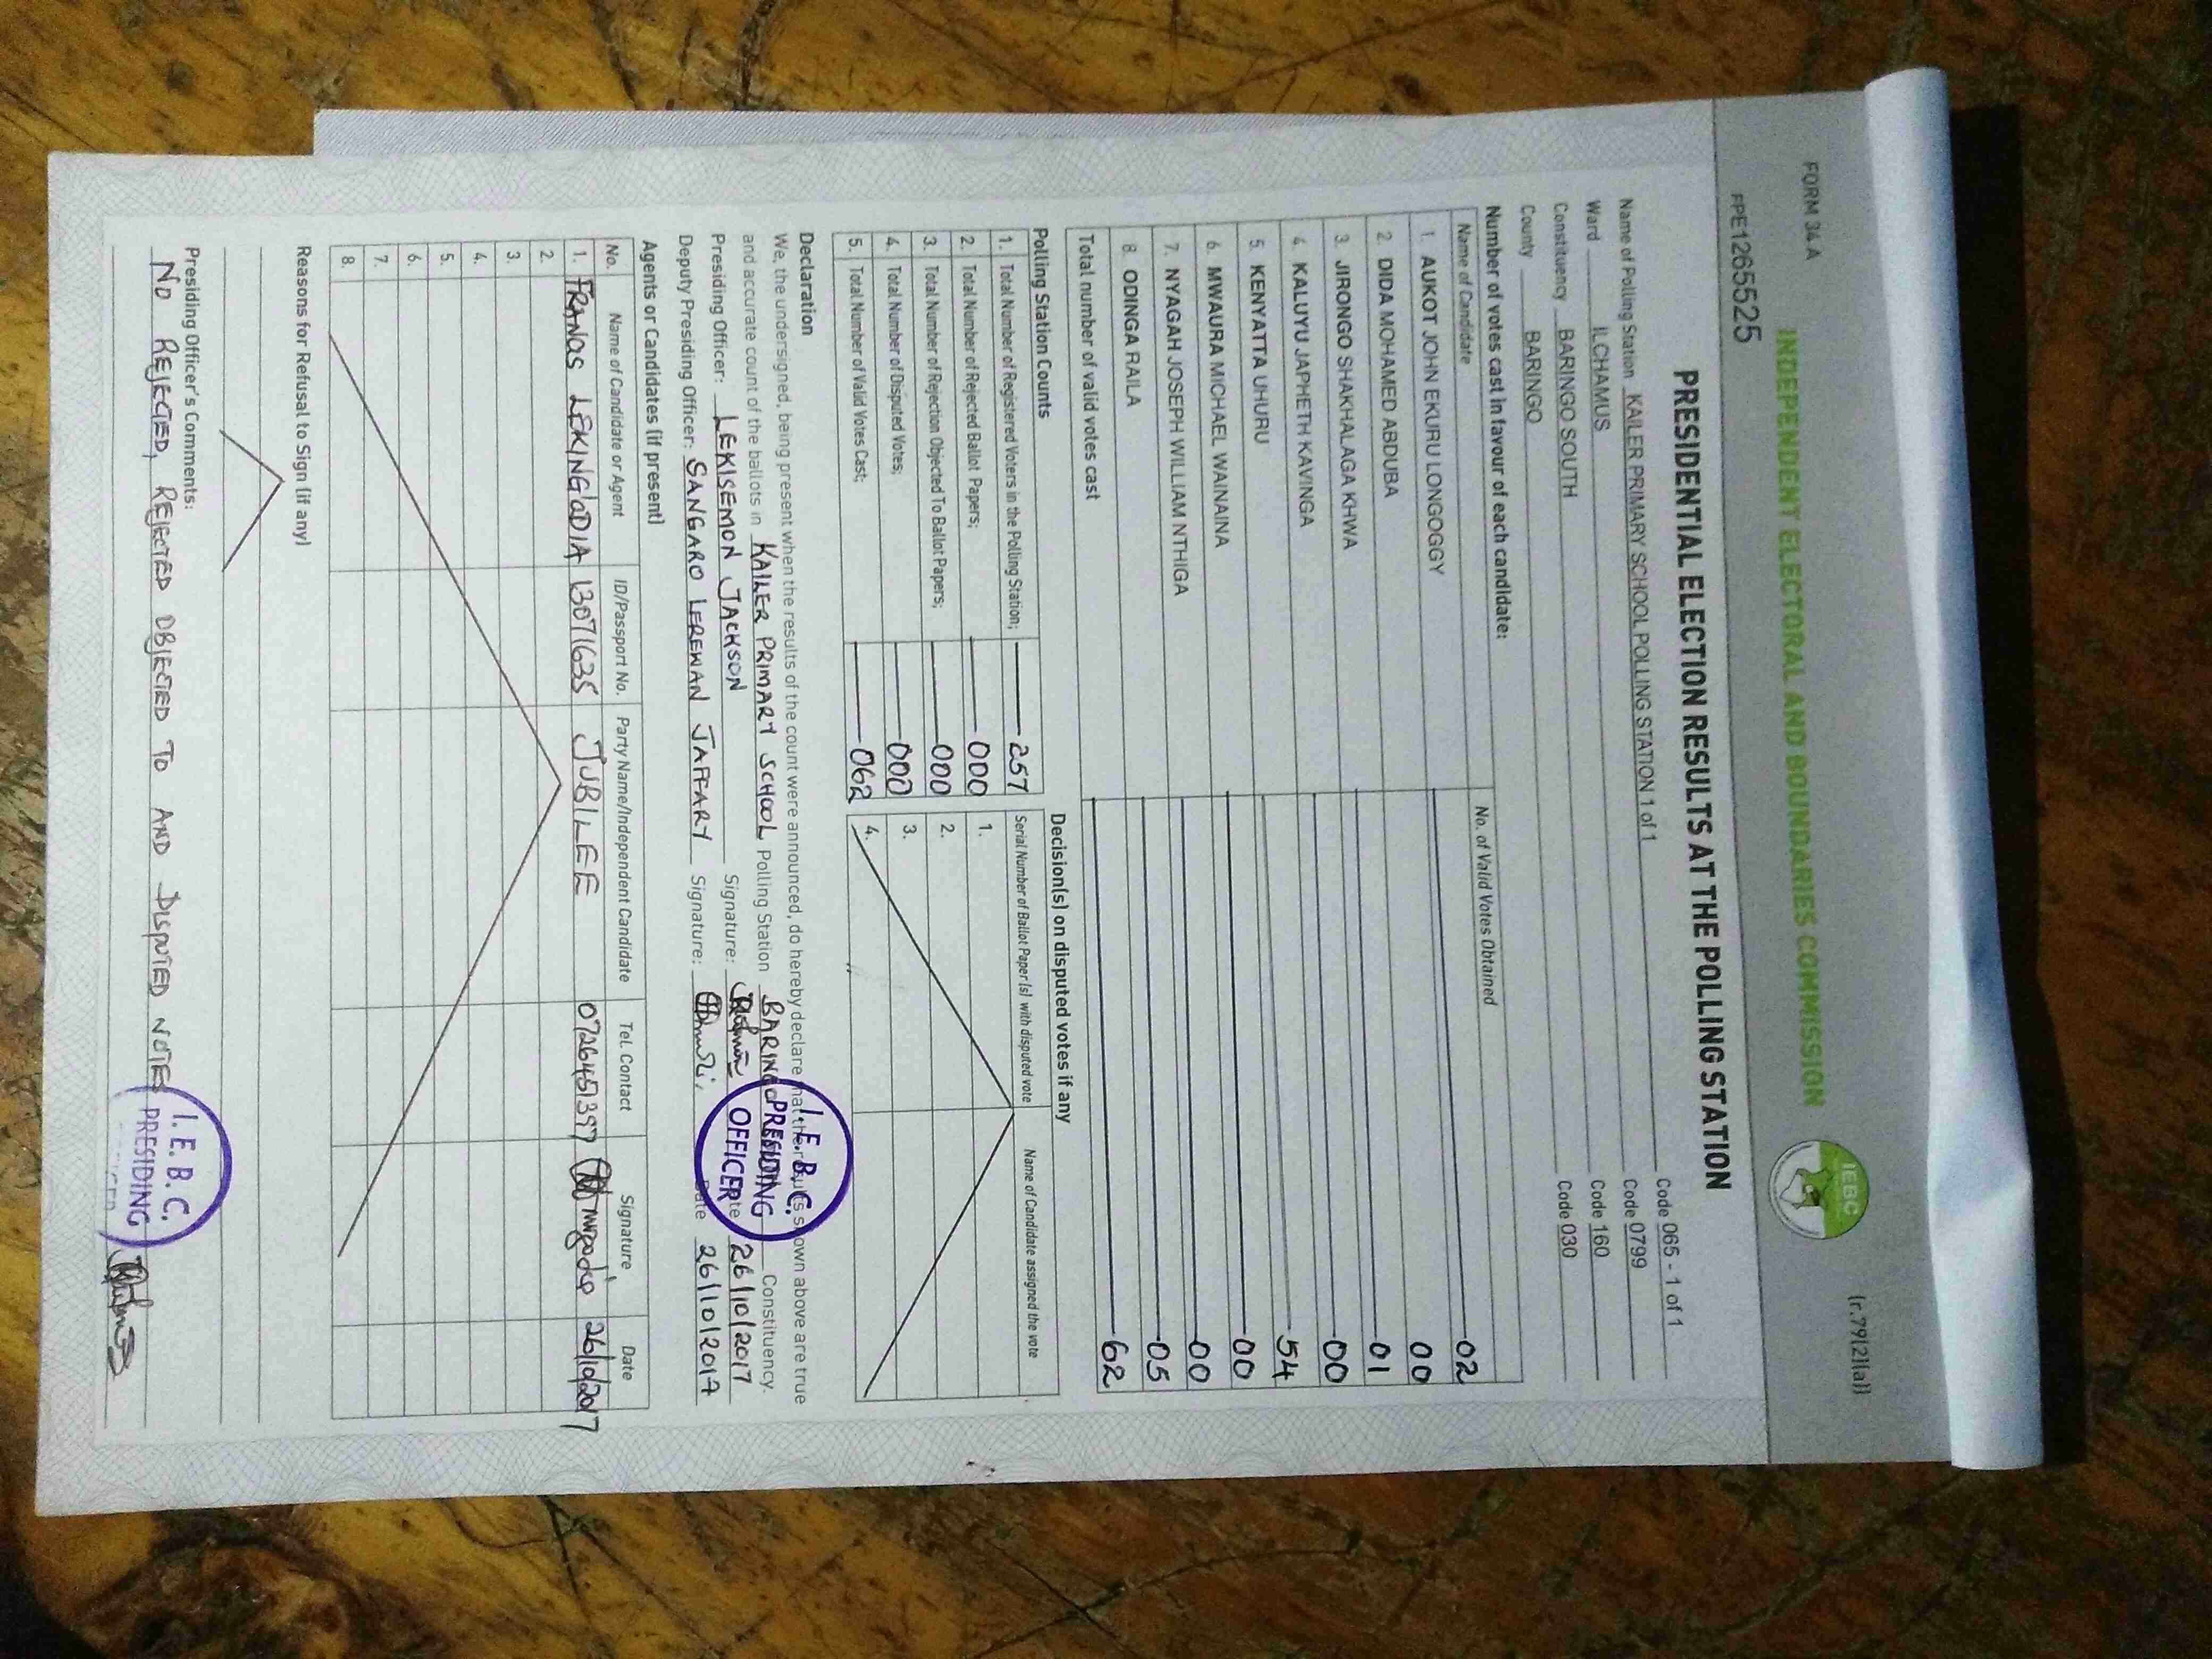 FORM 34 A
(r.79(2)(a))
INDEPENDENT ELECTORAL AND BOUNDARIES COMMISSION
IEBC
PPE1265525
PRESIDENTIAL ELECTION RESULTS AT THE POLLING STATION
Name of Polling Station KAILER PRIMARY SCHOOL POLLING STATION 1 of 1 Code 065 - 1 of 1
Ward ILCHAMUS Code 0799
Constituency BARINGO SOUTH Code 160
County BARINGO Code 030
Number of votes cast in favour of each candidate:
Name of Candidate No. of Valid Votes Obtained
1. AUKOT JOHN EKURU LONGOGGY 02
2. DIDA MOHAMED ABDUBA 00
3. JIRONGO SHAKHALAGA KHWA 01
4. KALUYU JAPHETH KAVINGA 00
5. KENYATTA UHURU 54
6. MWAURA MICHAEL WAINAINA 00
7. NYAGAH JOSEPH WILLIAM NTHIGA 00
8. ODINGA RAILA 05
Total number of valid votes cast 62
Polling Station Counts
1. Total Number of Registered Voters in the Polling Station; 257
2. Total Number of Rejected Ballot Papers; 000
3. Total Number of Rejection Objected To Ballot Papers; 000
4. Total Number of Disputed Votes; 000
5. Total Number of Valid Votes Cast; 062
Decision(s) on disputed votes if any
Serial Number of Ballot Paper (s) with disputed vote Name of Candidate assigned the vote
1.
2.
3.
4.
Declaration
We, the undersigned, being present when the results of the count were announced, do hereby declare that the results shown above are true
and accurate count of the ballots in KAILER PRIMARY SCHOOL Polling Station BARINGO Constituency.
Presiding Officer: LEKISEMON JACKSON Signature: Date 26/10/2017
Deputy Presiding Officer: SANGARO LEREWAN JAFFARY Signature: Date 26/10/2017
I.E.B.C.
PRESIDING
OFFICER
Agents or Candidates (if present)
No. Name of Candidate or Agent ID/Passport No. Party Name/Independent Candidate Tel. Contact Signature Date
1. FRANAS LEKING'ODIA 13071635 JUBILEE 0726451397 26/10/2017
2.
3.
4.
5.
6.
7.
8.
Reasons for Refusal to Sign (if any)
Presiding Officer's Comments:
NO REJECTED, REJECTED OBJECTED TO AND DISPUTED NOTES
I.E.B.C.
PRESIDING